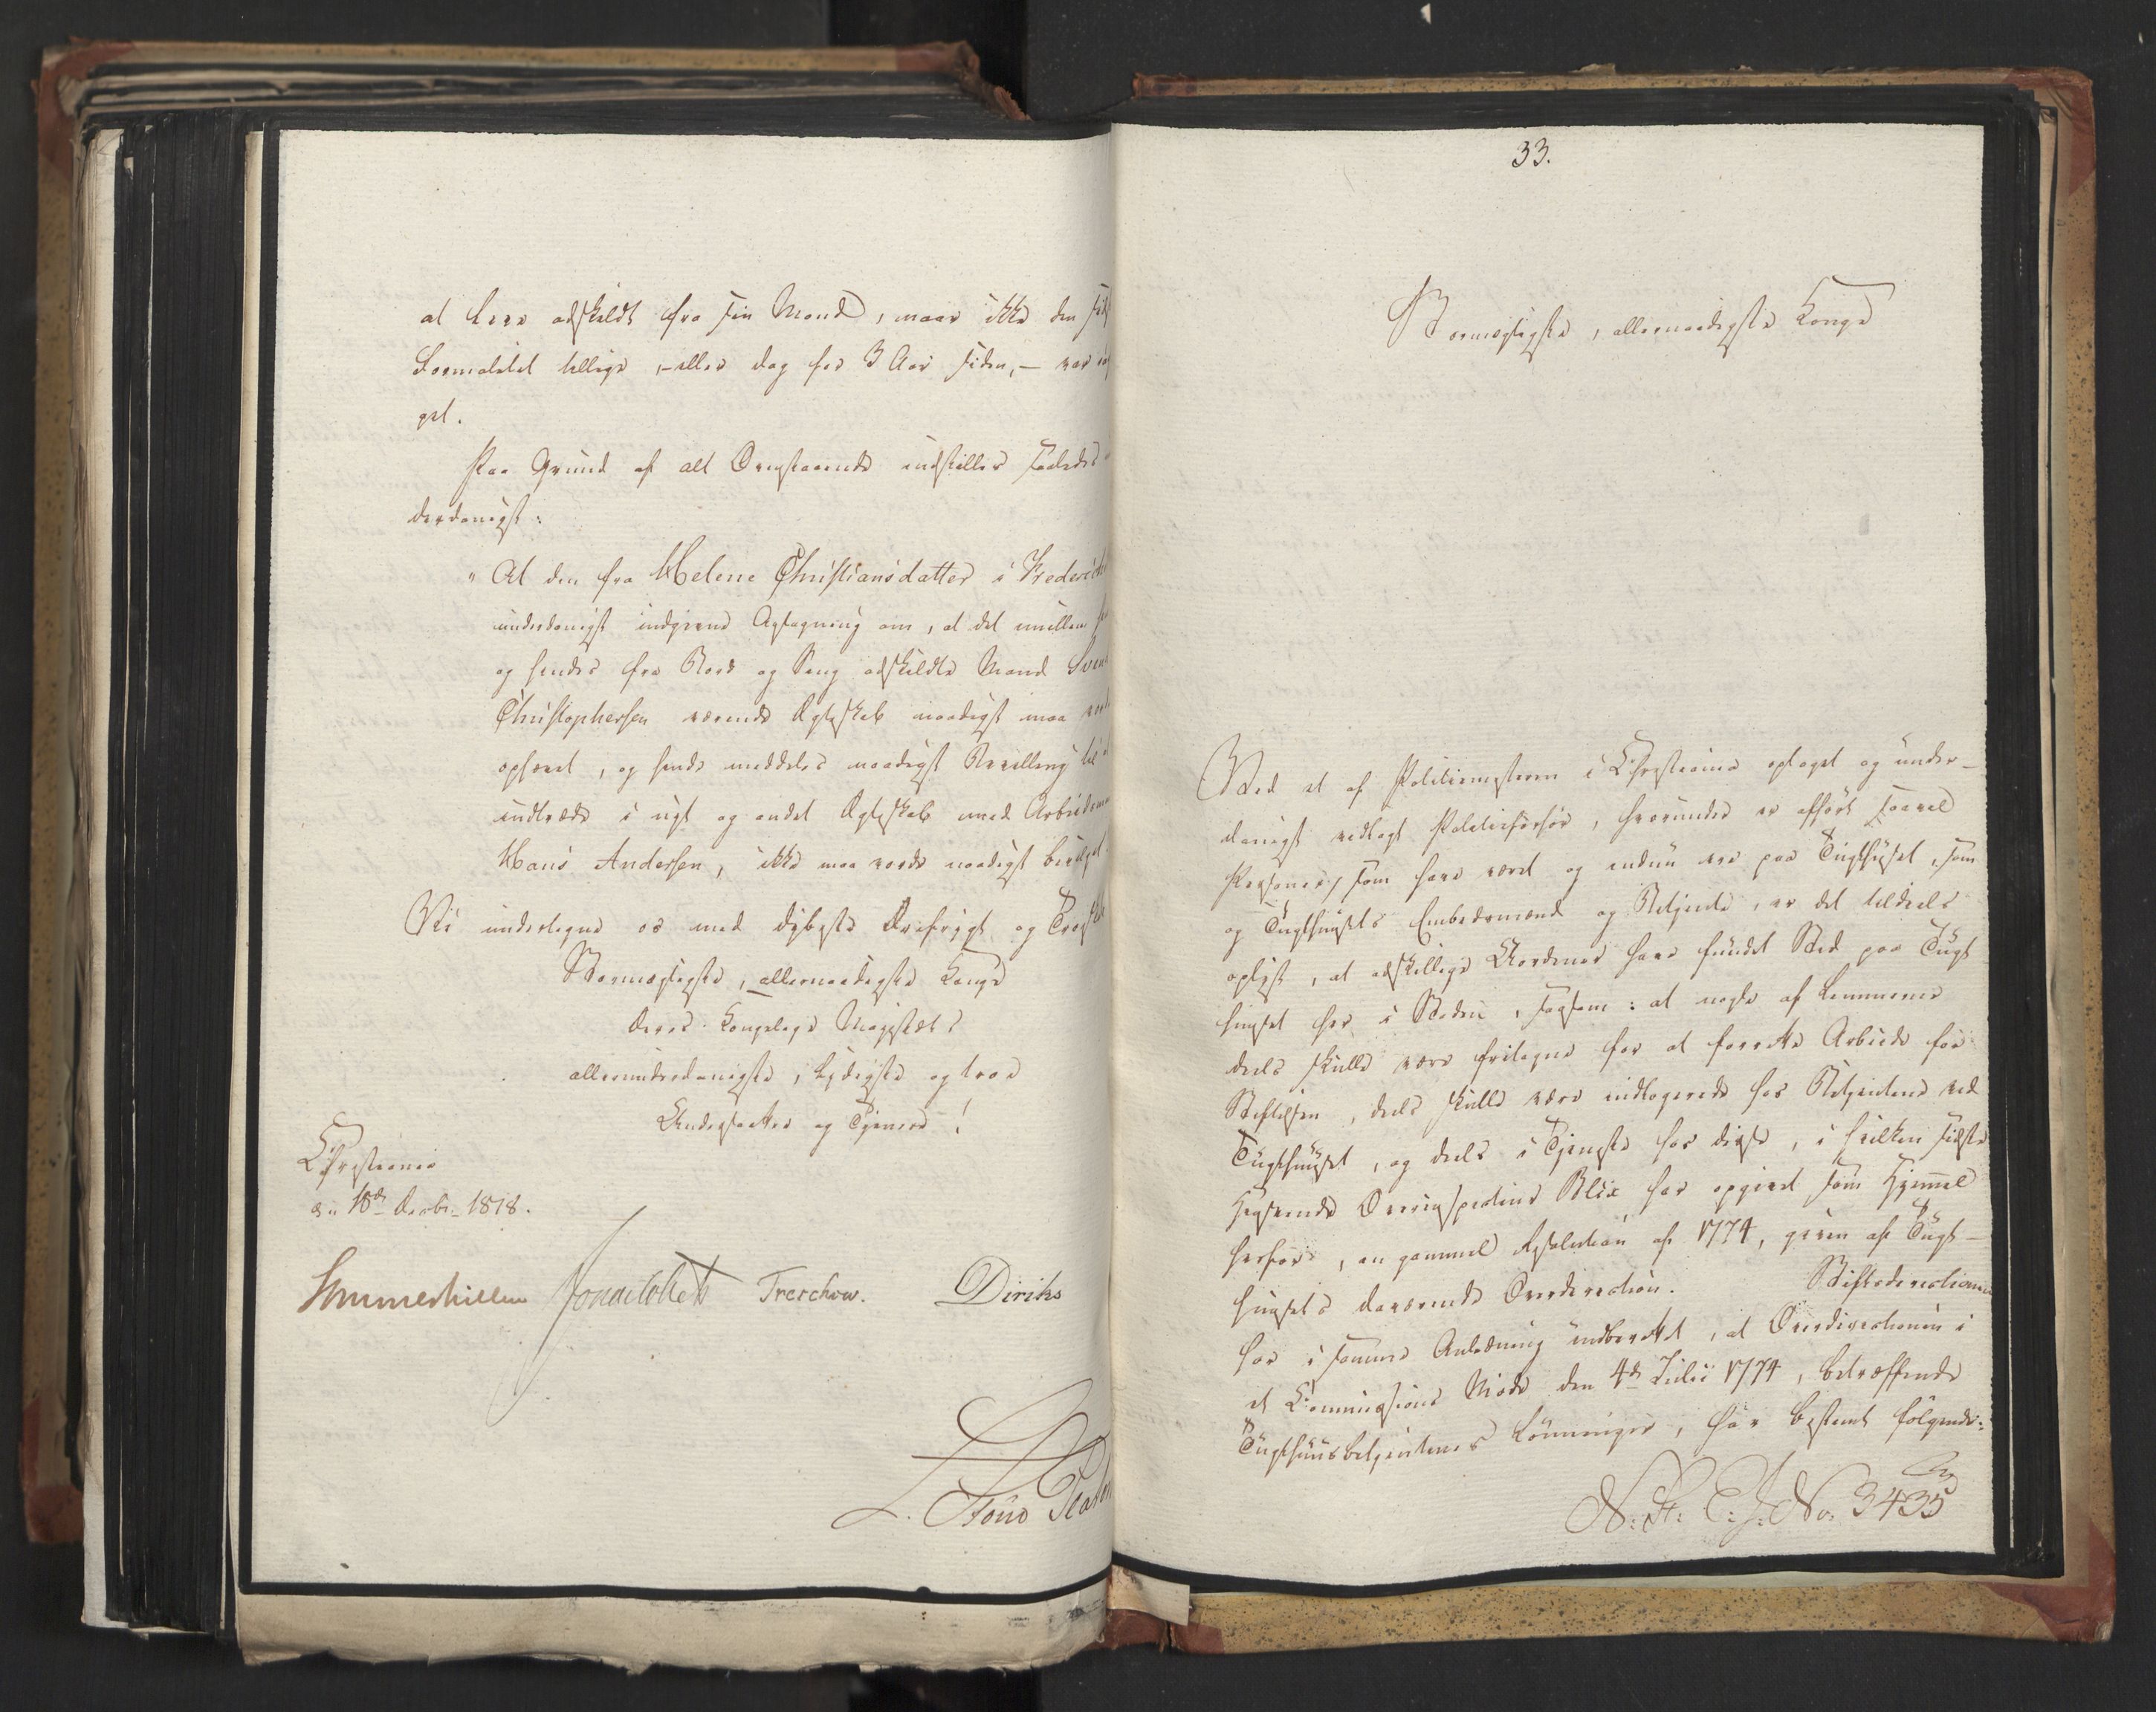 at leve adskildt fra sin Mand, maar ikke den
Formalitet tillige, - eller dog for 3 Aar siden, - var
get.
Paa Grund af alt Ovenstaaende indstilles saaledes
derdanigst:
"At den fra Helene Christiansdatter i Frederick
underdanigst indgivne Ansøgning om, at det imellem
og hendes fra Bord og Seng adskildte Mand Svend
Christophersen værende Ægteskab naadigst maa
ophævet, og hende meddeles naadigst Bevilling til
indtræde i nyt og andet Ægteskab med Arbeidsm
Hans Andersen, ikke maa vorde naadigst bevilget.
Vi undertegne os med dybeste Ærefrygt og Troskab
Stormægtigste, allernaadigste Konge
Deres Kongelige Majestæts
allerunderdanigste, lydigste og troe
Undersaatter og Tjenere!
Christiania
den 18de Decbr. 1818.
Sommerhielm Jonas Collett Treschow. Diriks
33.
Stormægtigste, allernaadigste Konge
Ved et af Politiemesteren i Christiania optaget og under-
danigst vedlagt Politieforhør, hvorunder er afhørt saavel
Personer, som have været og endnu ere paa Tugthuset, som
og Tugthusets Embedsmænd og Betjente, er det tildeels
oplyst, at adskillige Uordener have fundet Sted paa Tugt
huuset her i Staden, saasom: at nogle af Lemmerne
deels skulle være fritagne for at forrette Arbeide for
Stiftelsen, deels skulle være indlogerede hos Betjentene ved
Tugthuuset, og deels i Tjeneste hos disse, i hvilken sidste
Henseende Overinspecteur Blix har opgivet som Hjemmel
herfor, en gammel Resolution af 1774, given af Tugt-
huusets daværende Overdirection. Stiftsdirectionen
har i samme Anledning indberettet, at Overdirectionen i
et Commissions Møde den 4de Julii 1774, betræffende
Tugthuusbetjentenes Lønninger, har bestemt følgende:
No. 3435